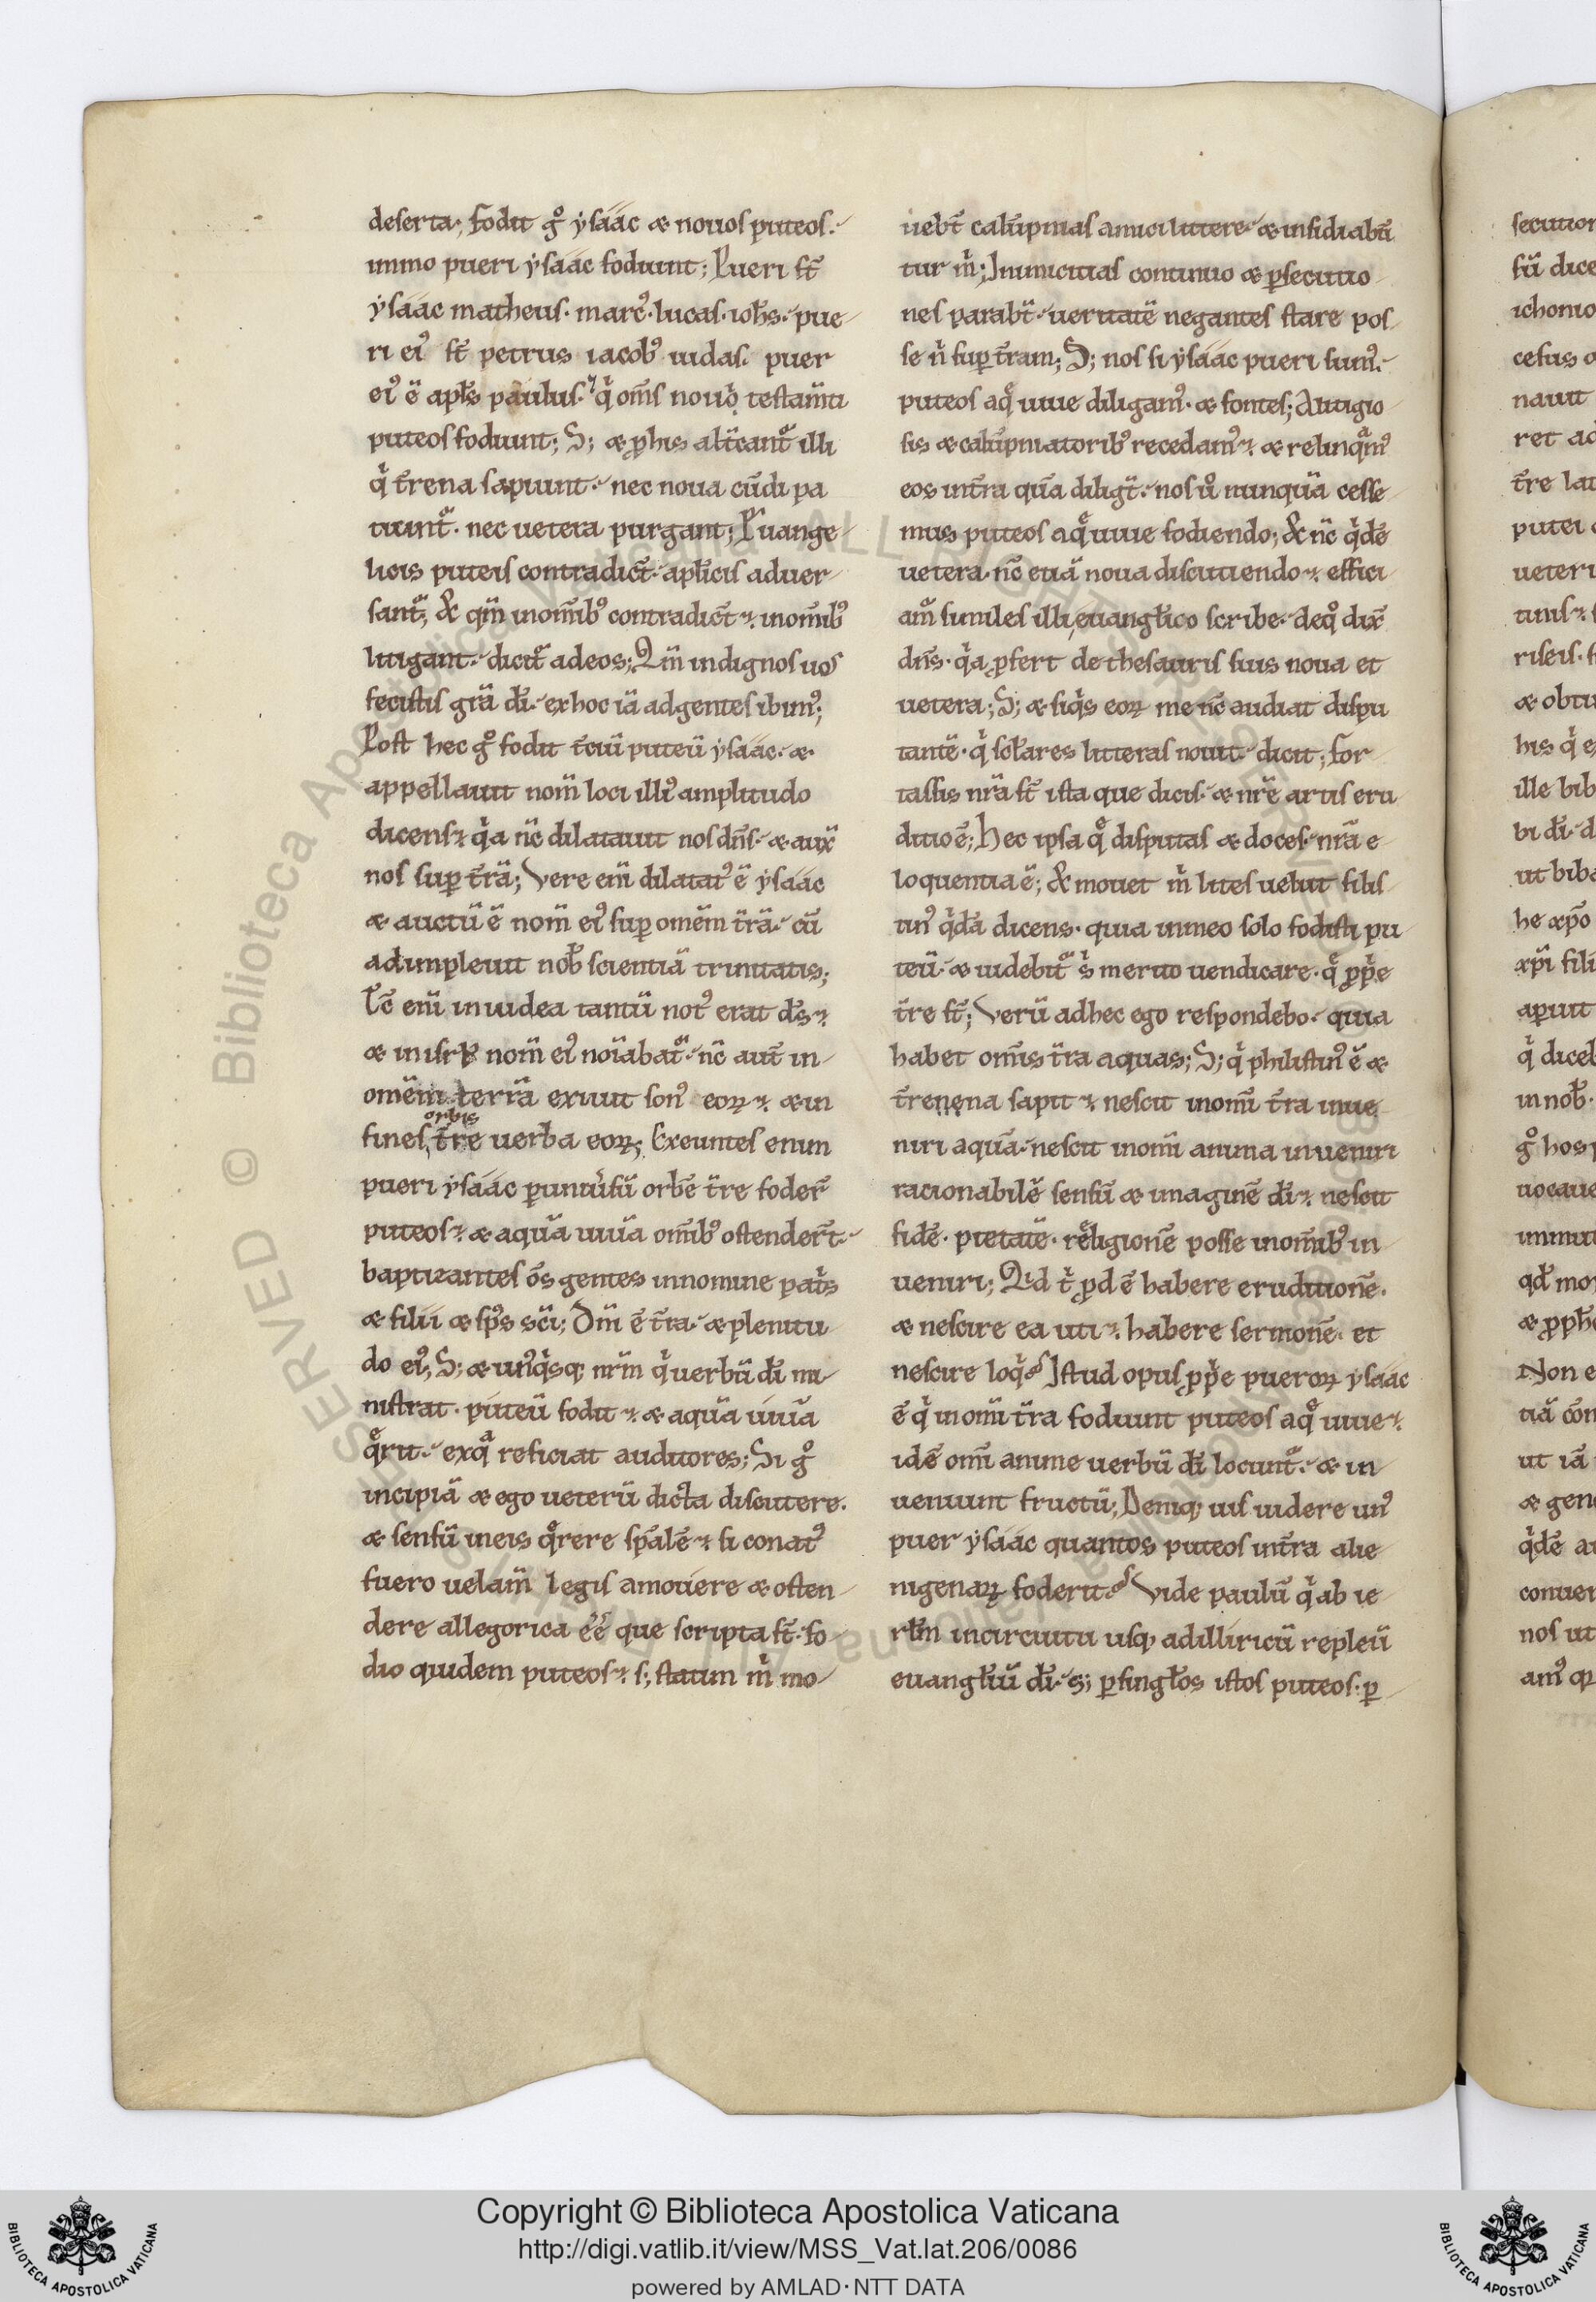 deserta; Fodit g° ẏsáác & nouos puteos.
immo pueri ẏsáác fodiunt; Pueri st̄
ẏsáác matheus. marc᷒. lucas. ioh̄s. pue-
ri ei᷒ st̄ petrus iacob᷒ iudas. puer
ei᷒ ē apl̄s paulus. q̇ om̄s noui testam̄ti
puteos fodiunt; S; & p̱ his alt̄cant᷑ illi
q̇ t̄rena sapiunt. nec noua cūdi pa
tiunt᷑. nec uetera purgant; Euange-
licis puteis contradict̄. apl̄icis aduer-
sant᷑; & qm̄ inom̄ib᷒ contradict̄. inom̄ib᷒
litigant. dicit᷑ adeos; Qm̄ indignos uos
fecistis grā dī. exhoc iā adgentes ibim᷒;
Post hec g° fodit t̄ciū puteū ẏsáác. &
appellauit nom̄ loci illi᷒ amplitudo
dicens. q̇a nc̄ dilatauit nos dn̄s. & aux̄
nos sup t̄rā; Vere em̄ dilatat᷒ ē ẏsáác
& auctū ē nom̄ ei᷒ sup omēm t̄rā. cū
adimpleuit nob̄ scientiā trinitatis;
Tc̄ em̄ iniudea tantū not᷒ erat ds̄.
& inisrl̄ nom̄ ei᷒ noīabat᷑. nc̄ aut̄ in-
omēm terrā exiuit son᷒ eoꝝ. & in
fines orbis t̄re uerba eoꝝ; Exeuntes enim
pueri ẏsáác p uniu̇sū orbē t̄re foder̄
puteos. & aquā uiuā om̄ib᷒ ostender̄t.
baptizantes os̄ gentes innomine pat̄s
& filii & sp̄s sc̄i; Dn̄i ē t̄ra. & plenitu-
do ei᷒; S; & un᷒q̇sq; nr̄m q̇ uerbū dī mi-
nistrat. puteū fodit. & aquā uiuā
q̄rit. exq̄ reficiat auditores; Si g°
incipiā & ego ueterū dicta discutere.
& sensū ineis q̄rere sp̄alē. si conat᷒
fuero uelam̄ legis amouere & osten-
dere allegorica ēē que scripta st̄. fo-
dio quidem puteos. s; statim m̄ mo-
uebt̄ calūpnias amici littere. & insidiabū
tur m̄; Inimicitias continuo & p̱secutio-
nes parabt̄. ueritatē negantes stare pos-
se n̄ sup t̄ram; S; nos si ẏsáác pueri sum᷒.
puteos aq̄ uiue diligam᷒. & fontes; Alitigio-
sis & calūpniatorib᷒ recedam᷒. & relinq̄m᷒
eos int̄ra quā diligt̄. nos u̇ nunquā cesse-
mus puteos aq̄ uiue fodiendo; & nc̄ q̇dē
uetera. nc̄ etiā noua discutiendo. effici-
am᷑ similes illi euangl̄ico scribe. deq° dix̄
dn̄s. q̇a p̱fert de thesauris suis noua et
uetera; S; & siq̇s eoꝝ me nc̄ audiat dispu
tantē. q̇ scl̄ares litteras nouit. dicit; For-
tassis nr̄a st̄ ista que dicis. & nr̄e artis eru
ditio ē; Hec ipsa q̄ disputas & doces. nr̄a e-
loquentia ē; & mouet m̄ lites uelut filis-
tin᷒ q̇dā dicens. quia inmeo solo fodisti pu-
teū. & uidebit᷑ s̄ merito uendicare. q̄ pp̄e
t̄re st̄; Verū adhec ego respondebo. quia
habet om̄is t̄ra aquas; S; q̇ philistin᷒ ē &
t̄renena sapit. nescit inom̄i t̄ra inue-
niri aquā. nescit inom̄i anima inueniri
racionabilē sensū & imaginē dī. nescit
fidē. pietatē. religionē posse inom̄ib᷒ in-
ueniri; Qid t̄ p̱d ē habere eruditionē.
& nescire ea uti. habere sermonē. et
nescire loq̇? Istud opus pp̄e pueroꝝ ẏsáác
ē q̇ inom̄i t̄ra fodiunt puteos aq̄ uiue.
idē om̄i anime uerbū dī locunt᷑. & in-
ueniunt fructū; Deniq; uis uidere un᷒
puer ẏsáác quantos puteos int̄ra alie-
nigenaꝝ foderit? Vide paulū q̇ ab ie-
rl̄m incircuitu usq; adilliricū repleū
euangl̄iū dī. s; p̱ singl̄os istos puteos. p̱
Copyright © Biblioteca Apostolica Vaticana
http://digi.vatlib.it/view/MSS_Vat.lat.206/0086
powered by AMLAD·NTT DATA